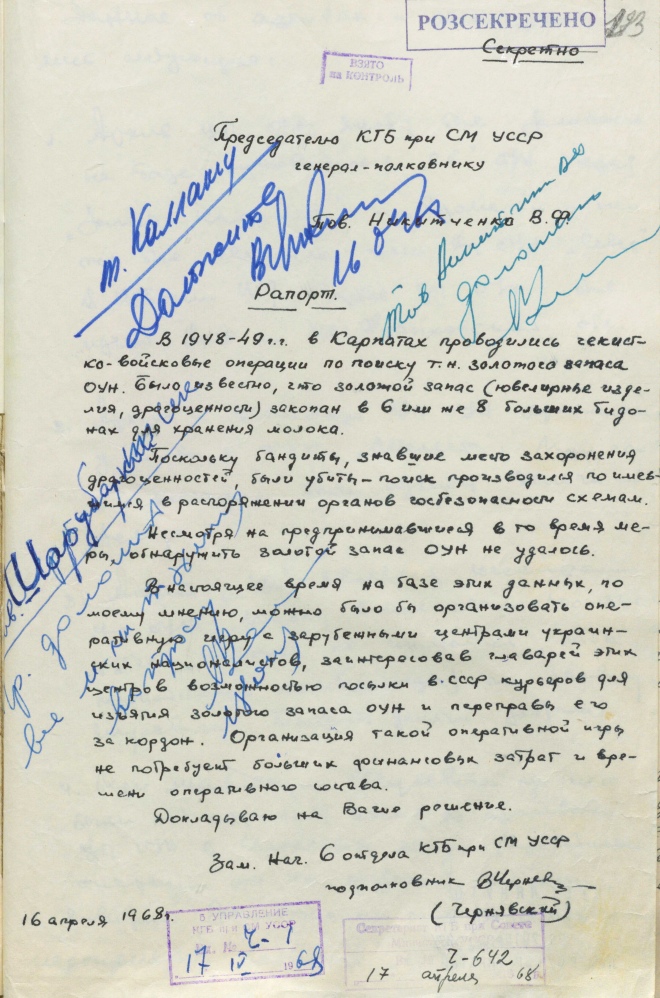 РОЗСЕКРЕЧЕНО
293
Секретно
ВЗЯТО
на КОНТРОЛЬ
Председателю КГБ при СМ УССР
генерал-полковнику
Тов. Никитченко В.Ф.
т. Каллаш
Доложите
16
Тов
доложить
Рапорт.
В 1948-49 г.г. в Карпатах проводились чекист-
ко-войсковые операции по поиску т.н. золотого запаса
ОУН. Было известно, что золотой запас (ювелирные изде-
лия, драгоценности) закопан в 6 или же 8 больших бидо-
нах для хранения молока.
Поскольку бандиты, знавшие место захоронения
драгоценностей, были убиты – поиск производился по имев-
шимся в распоряжении органов госбезопасности схемам.
Несмотря на предпринимавшиеся в то время ме-
ры, обнаружить золотой запас ОУН не удалось.
В настоящее время на базе этих данных, по
моему мнению, можно было бы организовать опе-
ративную игру с зарубежными центрами украин-
ских националистов, заинтересовав главарей этих
центров возможностью посылки в СССР курьеров для
изъятия золотого запаса ОУН и переправы его
за кордон. Организация такой оперативной игры
не потребует больших финансовых затрат и вре-
мени оперативного состава.
Докладываю на Ваше решение.
Зам. Нач. 6 отдела КГБ при СМ УССР
подполковник
(Чернявский)
16 апреля 1968г.
6 УПРАВЛЕНИЕ
КГБ при СМ УССР
Вх. № Ч-1
17 IV 1968
Ч-642
17 апреля 68